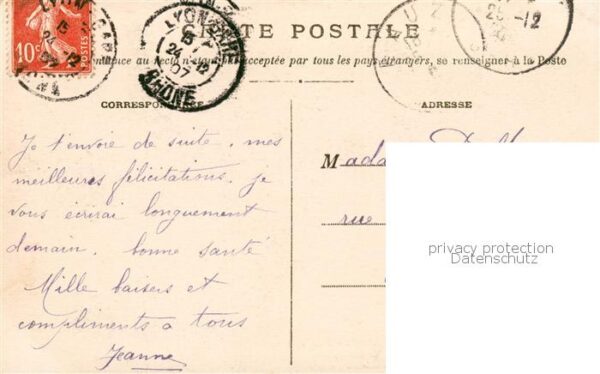 LYON-GARE
10c
POSTES
LYON-GARE
5E
24-12
07
RHONE
25-12
CARTE POSTALE
au recto n'est pas acceptée par tous les pays étrangers, se renseigner à la Poste
CORRESPONDANCE
ADRESSE
Je t'envoie de suite, mes
meilleures félicitations, je
vous écrirai longuement
demain, bonne santé
Mille baisers et
compliments a tous
Jeanne
Mada
rue
privacy protection
Datenschutz